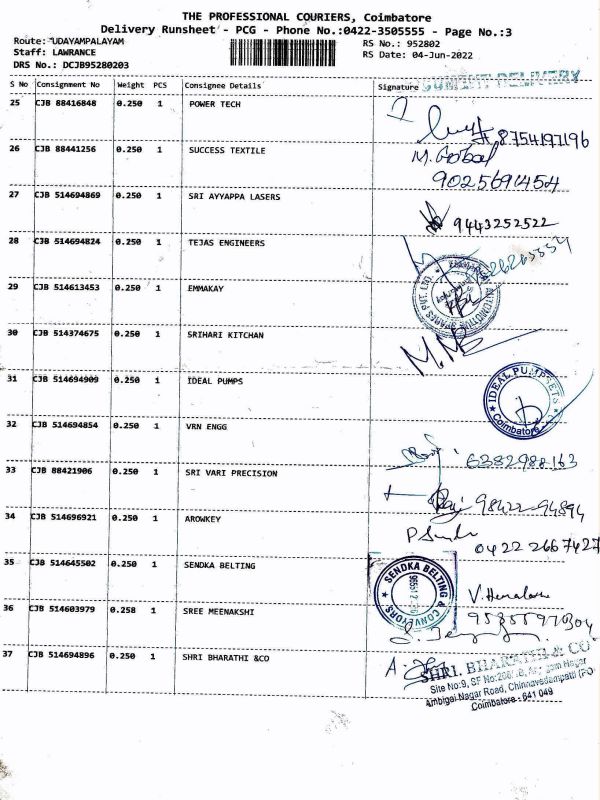 THE PROFESSIONAL COURIERS, Coimbatore
Delivery Runsheet - PCG - Phone No.:0422-3505555 - Page No.:3
Route: UDAYAMPALAYAM
RS No.: 952802
Staff: LAWRANCE
RS Date: 04-Jun-2022
DRS No.: DCJB95280203
S No Consignment No Weight PCS Consignee Details Signature
DELIVERY
25 CJB 88416848 0.250 1 POWER TECH
8754197196
26 CJB 88441256 0.250 1 SUCCESS TEXTILE
M. Gobal
9025691454
27 CJB 514694869 0.250 1 SRI AYYAPPA LASERS
9443252522
28 CJB 514694824 0.250 1 TEJAS ENGINEERS
29 CJB 514613453 0.250 1 EMMAKAY
AUTOMOTIVE SPARES PVT. LTD.
30 CJB 514374675 0.250 1 SRIHARI KITCHAN
31 CJB 514694909 0.250 1 IDEAL PUMPS
IDEAL PUMPSETS
Coimbatore
32 CJB 514694854 0.250 1 VRN ENGG
6382988163
33 CJB 88421906 0.250 1 SRI VARI PRECISION
98422-94894
34 CJB 514696921 0.250 1 AROWKEY
0422 2667427
35 CJB 514645502 0.250 1 SENDKA BELTING
SENDKA BELTING & CONVEYORS
36 CJB 514603979 0.250 1 SREE MEENAKSHI
37 CJB 514694896 0.250 1 SHRI BHARATHI &CO
SHRI. BHARATHI & CO
Site No:9, SF No: Nagar
Ambigai Nagar Road, Chinnavedampatti (PO)
Coimbatore - 641 049